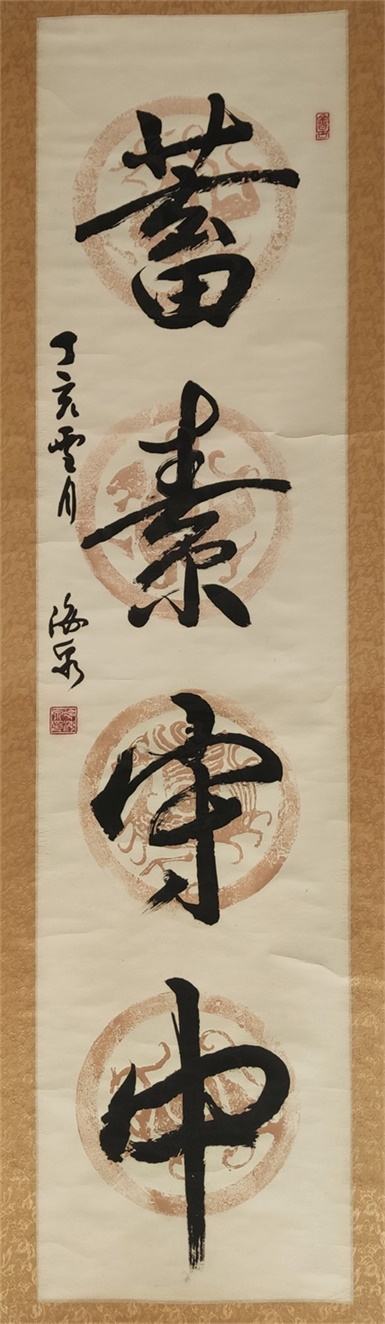 蓄素守中
丁亥雪月
海泉